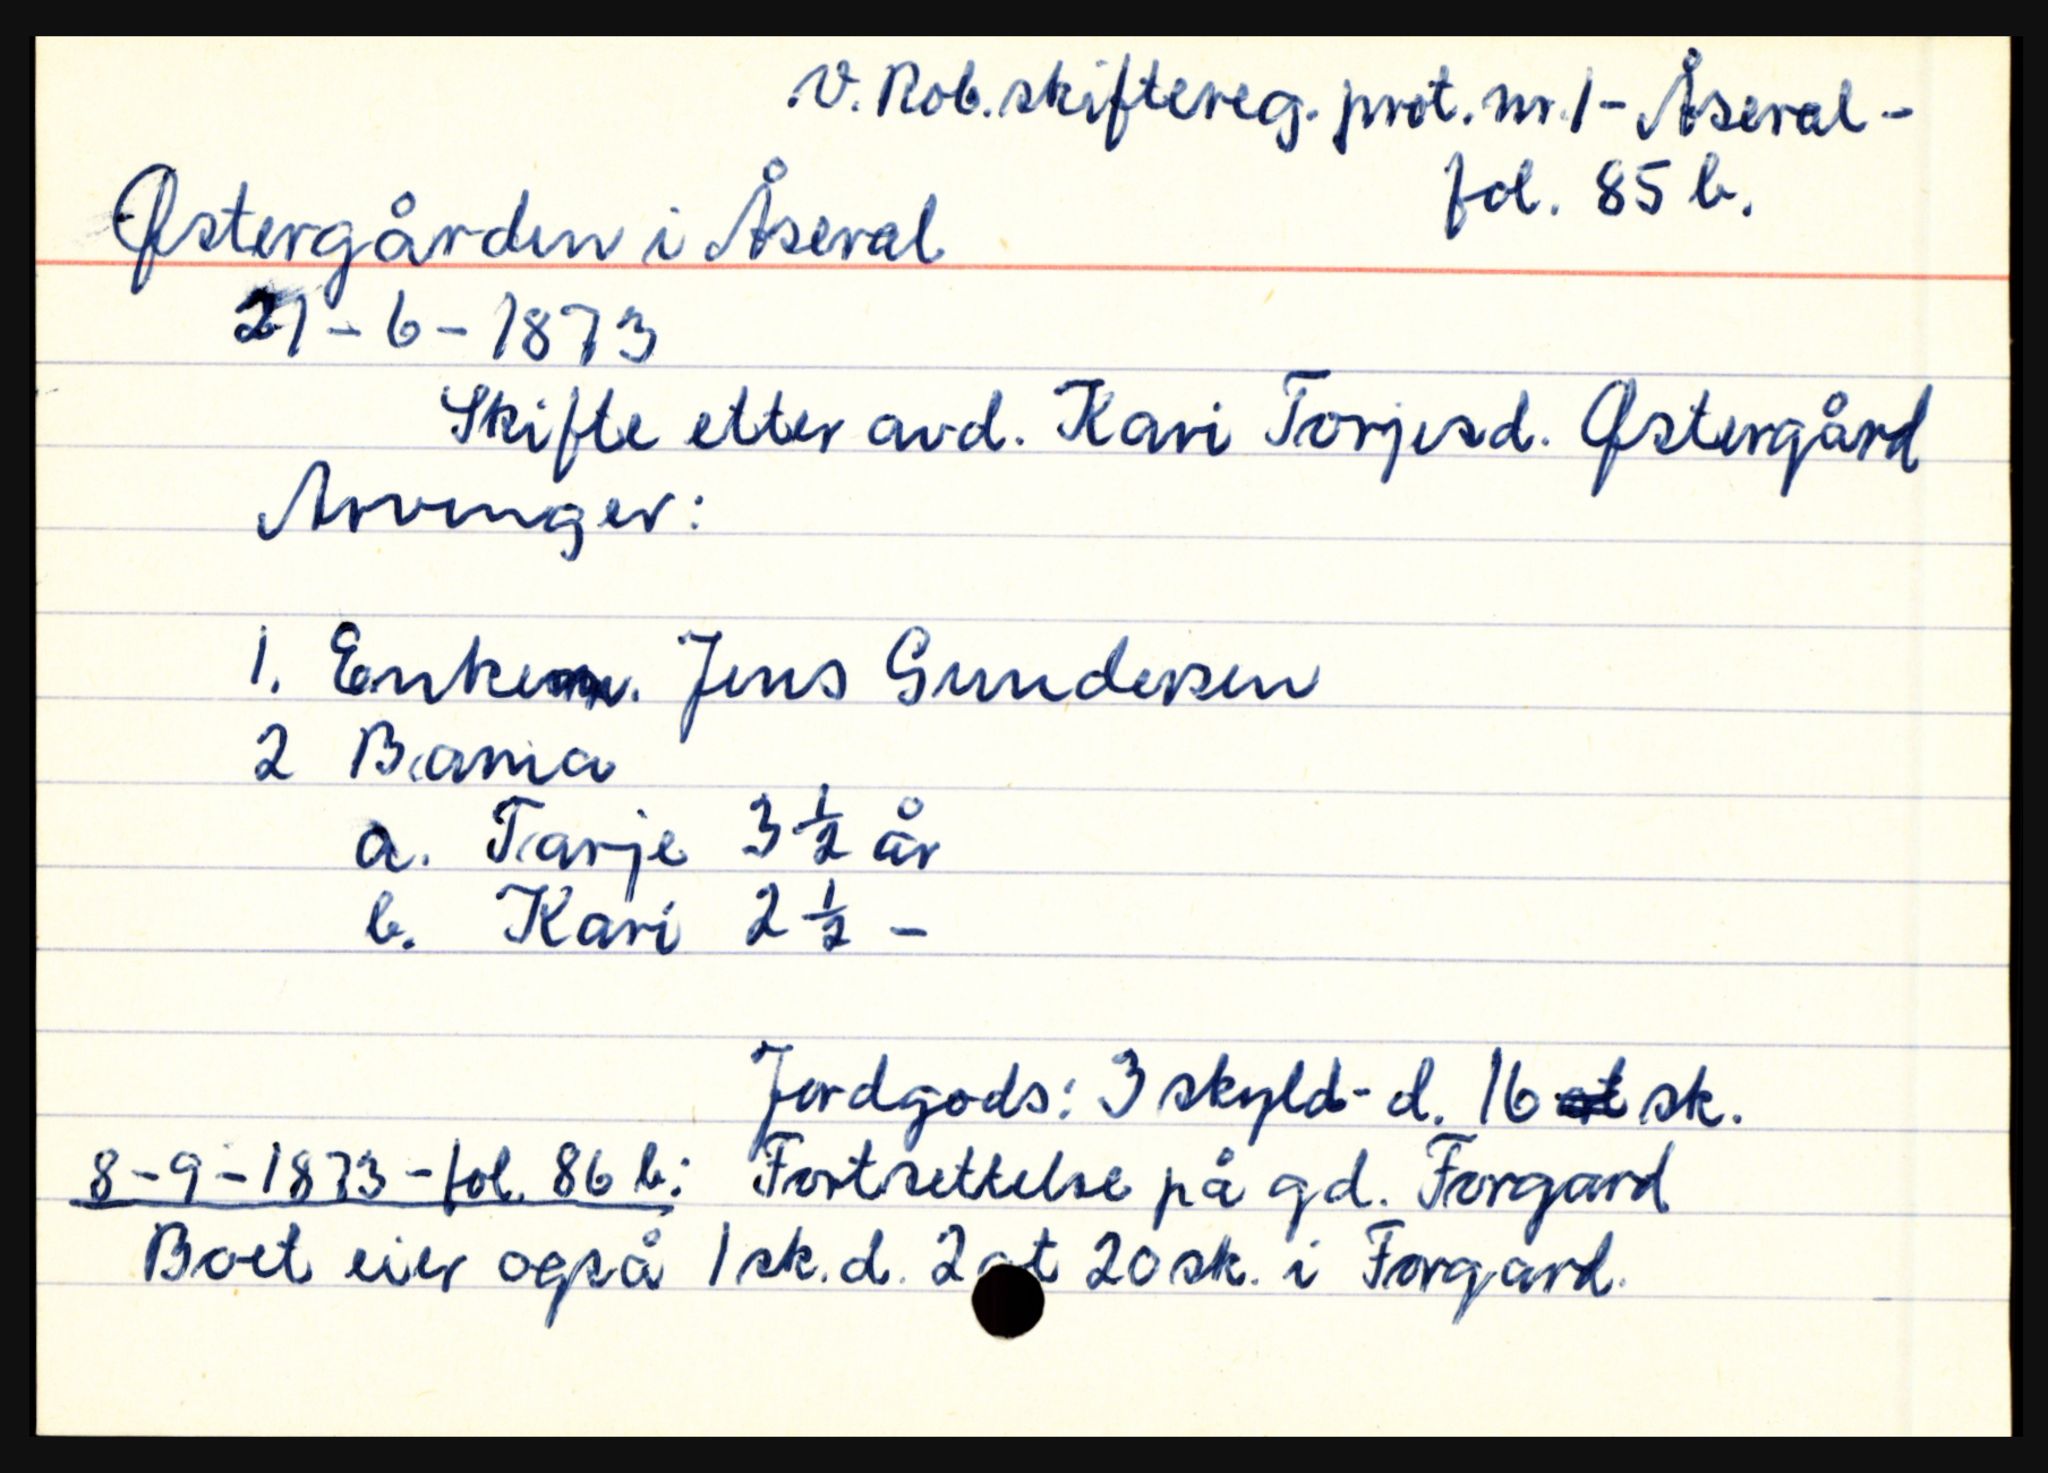 V. Rob. skiftereg. prot. nr. 1 - Åseral -
fol. 85 b.
Østergården i Åseral
21 - 6 - 1873
Skifte etter avd. Kari Torjesd. Østergård
Arvinger:
1. Enkem. Jens Gundersen
2 Barna
a. Tarje 3 1/2 år
b. Kari 2 1/2 -
Jordgods: 3 skyld-d. 16 sk.
8 - 9 - 1873 - fol. 86 b: Fortsettelse på gd. Forgard
Boet eier også 1 sk. d. 2 ot 20 sk. i Forgard.